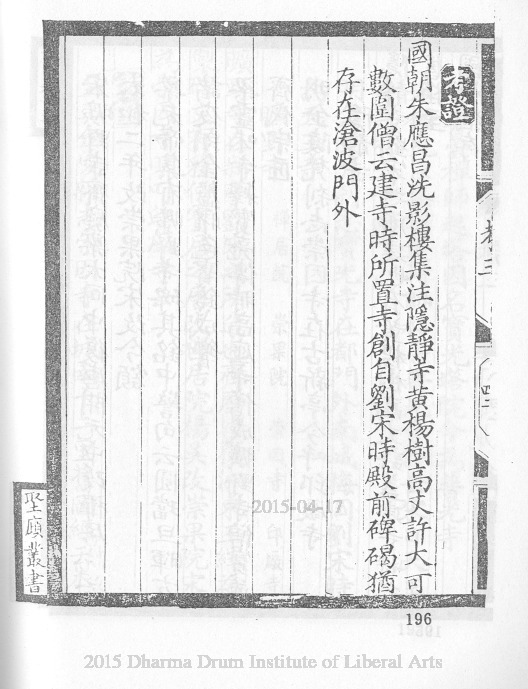 考證
國朝朱應昌洗影樓集注隱靜寺黃楊樹高丈許大可
數圍僧云建寺時所置寺創自劉宋時殿前碑碣猶
存在滄波門外
卷三
四
堅願叢書
2015-04-17
196
2015 Dharma Drum Institute of Liberal Arts